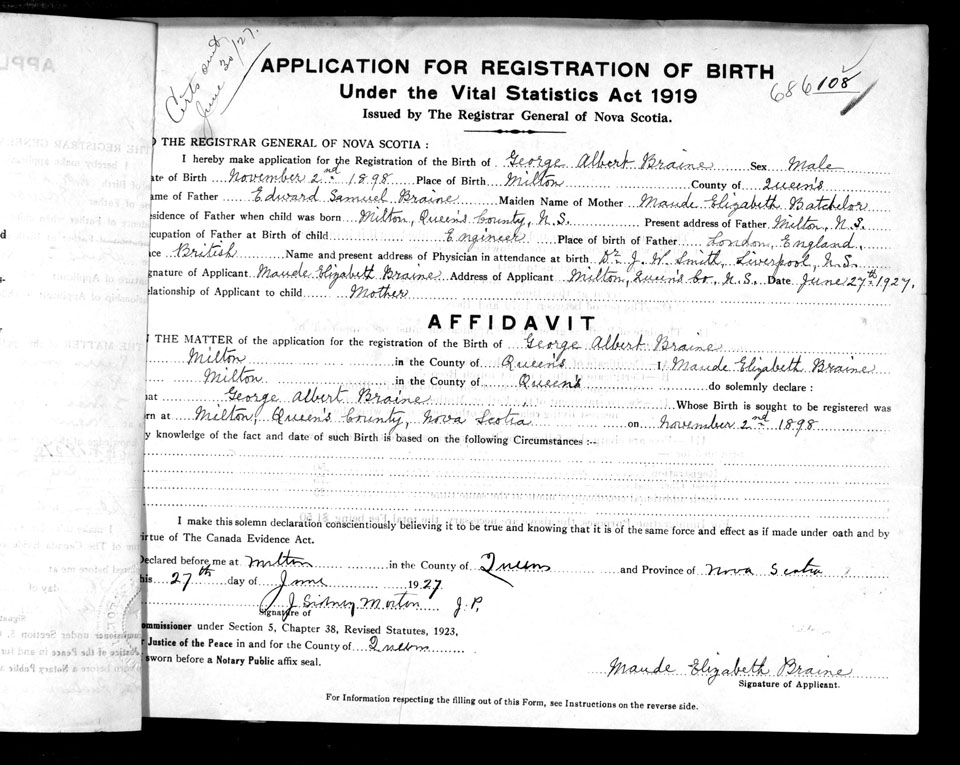 Certs out
June 30/27.
686 108
APPLICATION FOR REGISTRATION OF BIRTH
Under the Vital Statistics Act 1919
Issued by The Registrar General of Nova Scotia.
O THE REGISTRAR GENERAL OF NOVA SCOTIA :
I hereby make application for the Registration of the Birth of George Albert Braine Sex Male
ate of Birth November 2nd 1898 Place of Birth Milton County of Queen's
ame of Father Edward Samuel Braine Maiden Name of Mother Maude Elizabeth Batchelor
esidence of Father when child was born Milton, Queen's County, N.S. Present address of Father Milton, N.S.
ccupation of Father at Birth of child Engineer Place of birth of Father London, England.
ace British Name and present address of Physician in attendance at birth Dr. J. W. Smith, Liverpool, N.S.
ignature of Applicant Maude Elizabeth Braine Address of Applicant Milton, Queen's Co., N.S. Date June 27th 1927.
elationship of Applicant to child Mother
AFFIDAVIT
N THE MATTER of the application for the registration of the Birth of George Albert Braine
Milton in the County of Queen's I, Maude Elizabeth Braine
Milton in the County of Queen's do solemnly declare :
hat George Albert Braine Whose Birth is sought to be registered was
rn at Milton, Queen's County, Nova Scotia on November 2nd 1898
y knowledge of the fact and date of such Birth is based on the following Circumstances :--
I make this solemn declaration conscientiously believing it to be true and knowing that it is of the same force and effect as if made under oath and by
irtue of The Canada Evidence Act.
Declared before me at Milton in the County of Queens and Province of Nova Scotia
his 27th day of June 1927.
J Sidney Morton J.P.
Signature of
ommissioner under Section 5, Chapter 38, Revised Statutes, 1923,
r Justice of the Peace in and for the County of Queens
sworn before a Notary Public affix seal.
Maude Elizabeth Braine
Signature of Applicant.
For Information respecting the filling out of this Form, see Instructions on the reverse side.